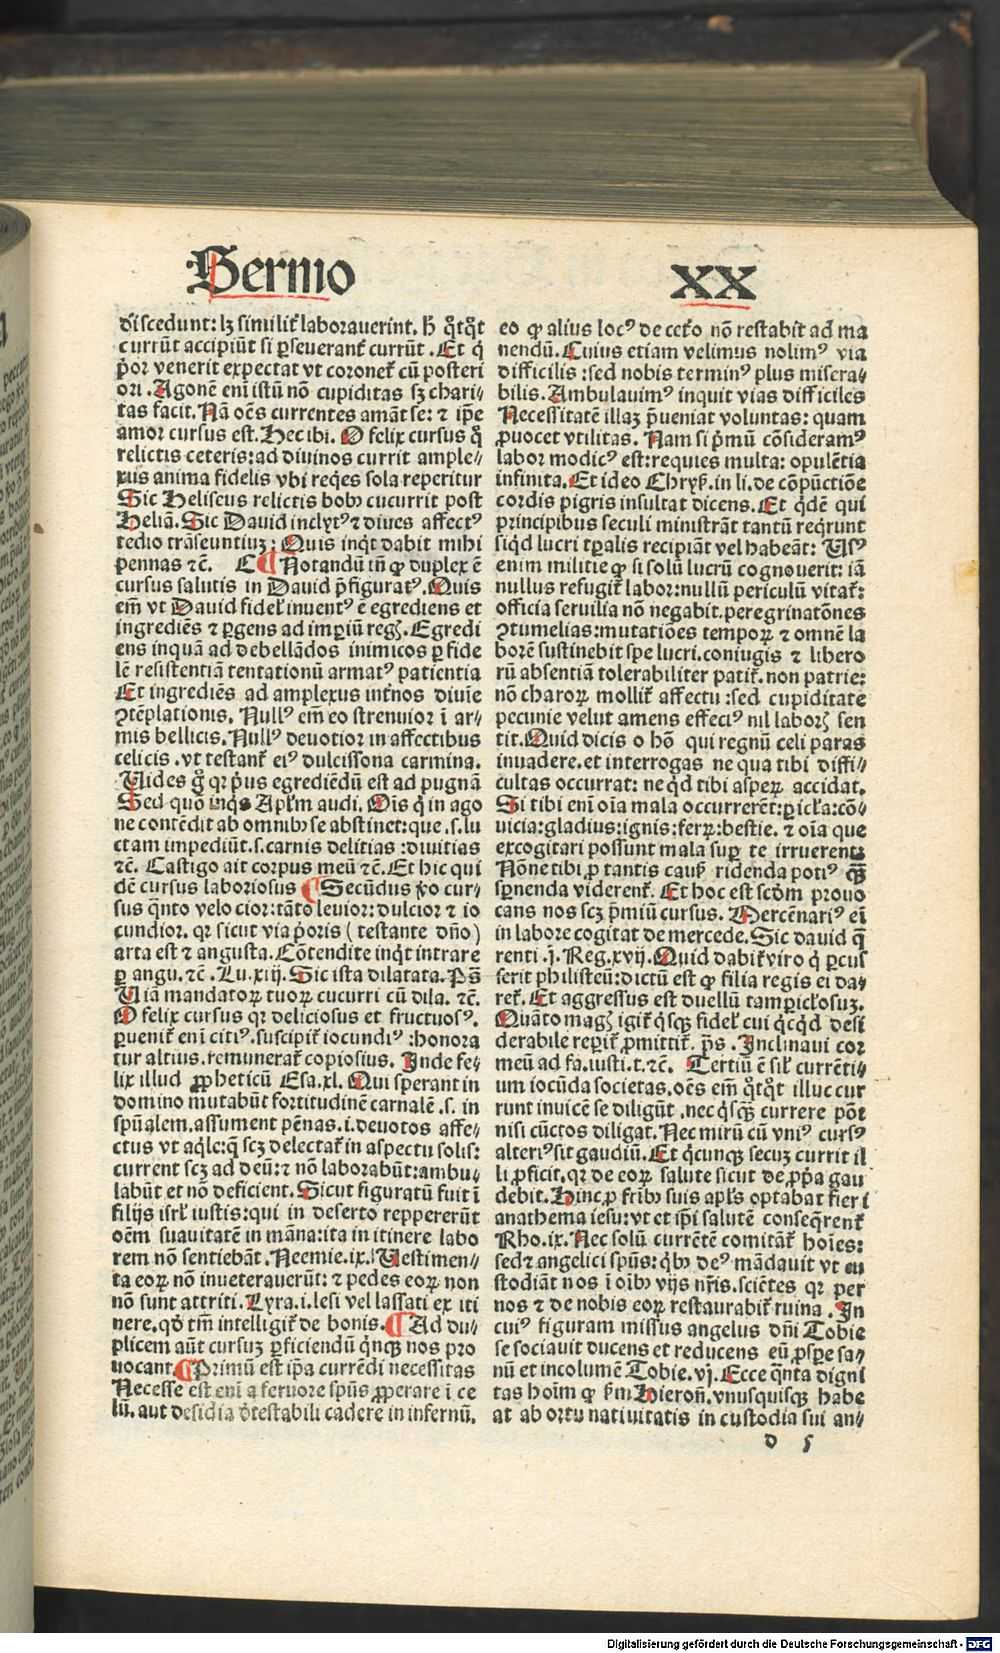 Sermo
XX
discedunt: lꝫ similit̃ laborauerint. h̃ q̊tq̊t
currũt accipiũt si ꝑseuerant̃ currũt. Et q̇
p̊or venerit expectat vt coronet̃ cũ posteri
ori. Agonẽ eni istũ nõ cupiditas sꝫ chari⸗
tas facit. Nã oẽs currentes amãt se: ⁊ ip̃e
amor cursus est. Hec ibi. O felix cursus q̊
relictis ceteris: ad diuinos currit ample⸗
xus anima fidelis vbi reqẽs sola reperitur
Sic Heliseus relictis bobꝫ cucurrit post
Heliã. Sic Dauid inclytꝰ ⁊ diues affectꝰ
tedio trãseuntiuꝫ: Quis inq̇t dabit mihi
pennas ⁊c̃. C Notandũ iñ ꝙ duplex ẽ
cursus salutis in Dauid p̃figuratꝰ. Quis
em̃ vt Dauid fidel̃ inuentꝰ ẽ egrediens et
ingrediẽs ⁊ ꝑgens ad imꝑiũ regꝫ. Egredi
ens inquã ad debellãdos inimicos ꝑ fide
lẽ resistentiã tentationũ armatꝰ patientia
Et ingrediẽs ad amplexus int̃nos diuie
ꝯtẽplationis. Nullꝰ em̃ eo strenuior i ar⸗
mis bellicis. Nullꝰ deuotior in affectibus
celicis. vt testant̃ eiꝰ dulcissona carmina.
Uides g̊ qꝛ p̊us egrediẽdũ est ad pugnã
Sed quõ inqs Apl̃m audi. Ois q̇ in ago
ne contẽdit ab omnibꝫ se abstinet: que .s. lu
ctam impediũt. s. carnis delitias: diuitias
⁊c̃. Castigo ait corpus meũ ⁊c̃. Et hic qui
dẽ cursus laboriosus Secũdus ꝟo cur⸗
sus q̃nto velocior: tãto leuior: dulcior ⁊ io
cundior. qꝛ sicut via p̊oris (testante dño)
arta est ⁊ angusta. Cõtendite inq̇t intrare
ꝑ angu. ⁊c̃. Lu. xiij. Sic ista dilatata. Ps̃
Uia mandatoꝝ tuoꝝ cucurri cũ dila. ⁊c̃.
O felix cursus qꝛ deliciosus et fructuosꝰ.
ꝑuenit̃ eni citiꝰ. suscipit̃ iocundiꝰ: honora
tur altius. remunerat̃ copiosius. Inde fe⸗
lix illud ꝓpheticũ Esa. xl. Qui sperant in
domino mutabũt fortitudinẽ carnalẽ .s. in
spũalem. assument pẽnas. i. deuotos affe⸗
ctus vt aq̇le: q̃ scꝫ delectat̃ in aspectu solis:
current scꝫ ad deũ: ⁊ nõ laborabũt: ambu⸗
labũt et nõ deficient. Sicut figuratũ fuit i
filijs isrl̃ iustis: qui in deserto reppererũt
oẽm suauitatẽ in mãna: ita in itinere labo
rem nõ sentiebãt. Neemie. ix. Uestimen⸗
ta eoꝝ nõ inueterauerũt: ⁊ pedes eoꝝ non
nõ sunt attriti. Lyra. i. lesi vel lassati ex iti
nere. qđ tm̃ intelligit̃ de bonis. Ad du⸗
plicem aũt cursuꝫ ꝑficiendũ q̇nqꝫ nos pro
uocant. Primũ est ip̃a currẽdi necessitas
Necesse est eni a feruore spũs ꝓperare i ce
lũ. aut desidia detestabili cadere in infernũ.
eo ꝙ alius locꝰ de cet̃o nõ restabit ad ma
nendũ. Cuius etiam velimus nolimꝰ via
difficilis: sed nobis terminꝰ plus misera⸗
bilis. Ambulauimꝰ inquit vias difficiles
Necessitatẽ illaꝫ p̃ueniat voluntas: quam
ꝓuocet vtilitas. Nam si p̊mũ cõsideramꝰ
labor modicꝰ est: requies multa: opulẽtia
infinita. Et ideo Chrys̃. in li. de cõpũctiõe
cordis pigris insultat dicens. Et q̇dẽ qui
principibus seculi ministrãt tantũ reqrunt
siq̇d lucri tꝑalis recipiãt vel habeãt: Usꝰ
enim militie ꝙ si solũ lucrũ cognouerit: iã
nullus refugit̃ labor: nullũ periculũ vitat̃:
officia seruilia nõ negabit. peregrinatõnes
ꝯtumelias: mutatiões tempoꝝ ⁊ omnẽ la
borẽ sustinebit spe lucri. coniugis ⁊ libero
rũ absentiã tolerabiliter patit̃. non patrie:
nõ charoꝝ mollit̃ affectu: sed cupiditate
pecunie velut amens effectꝰ nil laborꝫ sen
tit. Quid dicis o hõ qui regnũ celi paras
inuadere. et interrogas ne qua tibi diffi⸗
cultas occurrat: ne q̇d tibi asperꝫ accidat.
Si tibi eni oĩa mala occurrerẽt: ꝑicl̃a: cõ⸗
uicia: gladius: ignis: ferꝝ: bestie. ⁊ oĩa que
excogitari possunt mala suꝑ te irruerent:
Nõne tibi ꝓ tantis caup̃ ridenda potiꝰ q̃ꝫ
sꝑnenda viderent̃. Et hoc est scđm prouo
cans nos scꝫ p̃miũ cursus. Mercẽnariꝰ ei
in labore cogitat de mercede. Sic dauid q̃
renti .j. Reg. xvij. Quid dabit̃ viro q̇ ꝑcus
serit philisteũ: dictũ est ꝙ filia regis ei da⸗
ret̃. Et aggressus est duellũ tam ꝑicl̃osuꝫ.
Quãto magꝫ igit̃ q̇sqꝫ fidel̃ cui q̇cq̇d desi
derabile reꝑit̃ ꝓmittit̃. ps̃. Inclinaui cor
meũ ad fa. iusti. t. ⁊c̃. Tertiũ ẽ sil̃ currẽti⸗
um iocũda societas. oẽs em̃ q̊tq̊t illuc cur
runt inuicẽ se diligũt. nec q̇sqꝫ currere põt
nisi cũctos diligat. Nec mirũ cũ vniꝰ cursꝰ
alteriꝰ sit gaudiũ. Et q̇cunqꝫ secuꝫ currit il
li ꝓficit. qꝛ de eoꝝ salute sicut de ꝓp̃a gau
debit. Hinc ꝓ frĩbꝫ suis apl̃s optabat fieri
anathema iesu: vt et ip̃i salutẽ conseqrent̃
Rho. ix. Nec solũ currẽtẽ comitãt̃ hoĩes:
sed ⁊ angelici spũs: q̇bꝫ deꝰ mãdauit vt cu
stodiãt nos i oĩbꝫ vijs nr̃is. sciẽtes qꝛ per
nos ⁊ de nobis eoꝝ restaurabit̃ ruina. In
cuiꝰ figuram missus angelus dñi Tobie
se sociauit ducens et reducens eũ ꝓspe sa⸗
nũ et incolumẽ Tobie. vj. Ecce q̃nta digni
tas hoĩm ꝙ ẜm Hieroñ. vnusquisqꝫ habe
at ab ortu natiuitatis in custodia sui an⸗
d 5
Digitalisierung gefördert durch die Deutsche Forschungsgemeinschaft - DFG